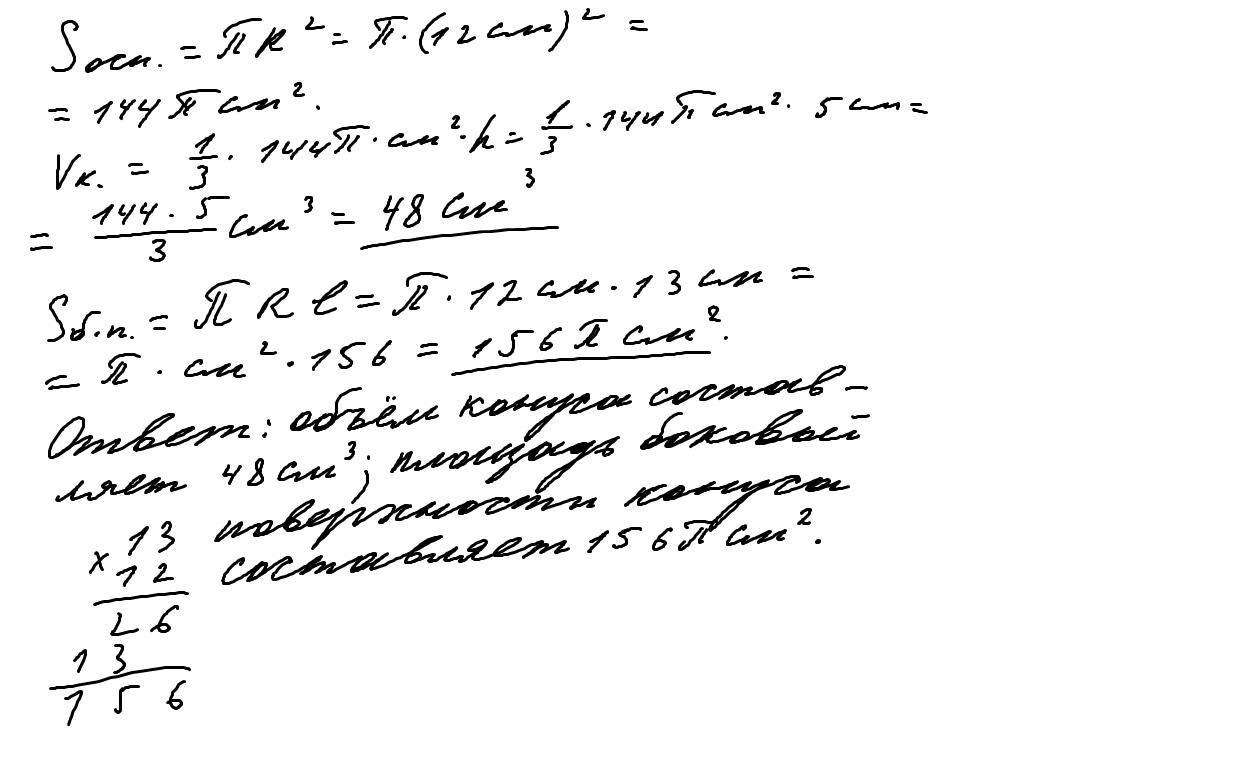 Sосн. = πR² = π·(12см)² =
= 144π см².
Vк. = 1/3 · 144π·см²·h = 1/3 · 144π см² · 5см =
= 144·5/3 см³ = 48 см³
Sб.п. = πRl = π·12см·13см =
= π·см²·156 = 156π см².
Ответ: объём конуса состав-
ляет 48см³; площадь боковый
поверхности конуса
составляет 156π см².
13
x 12
26
13
156